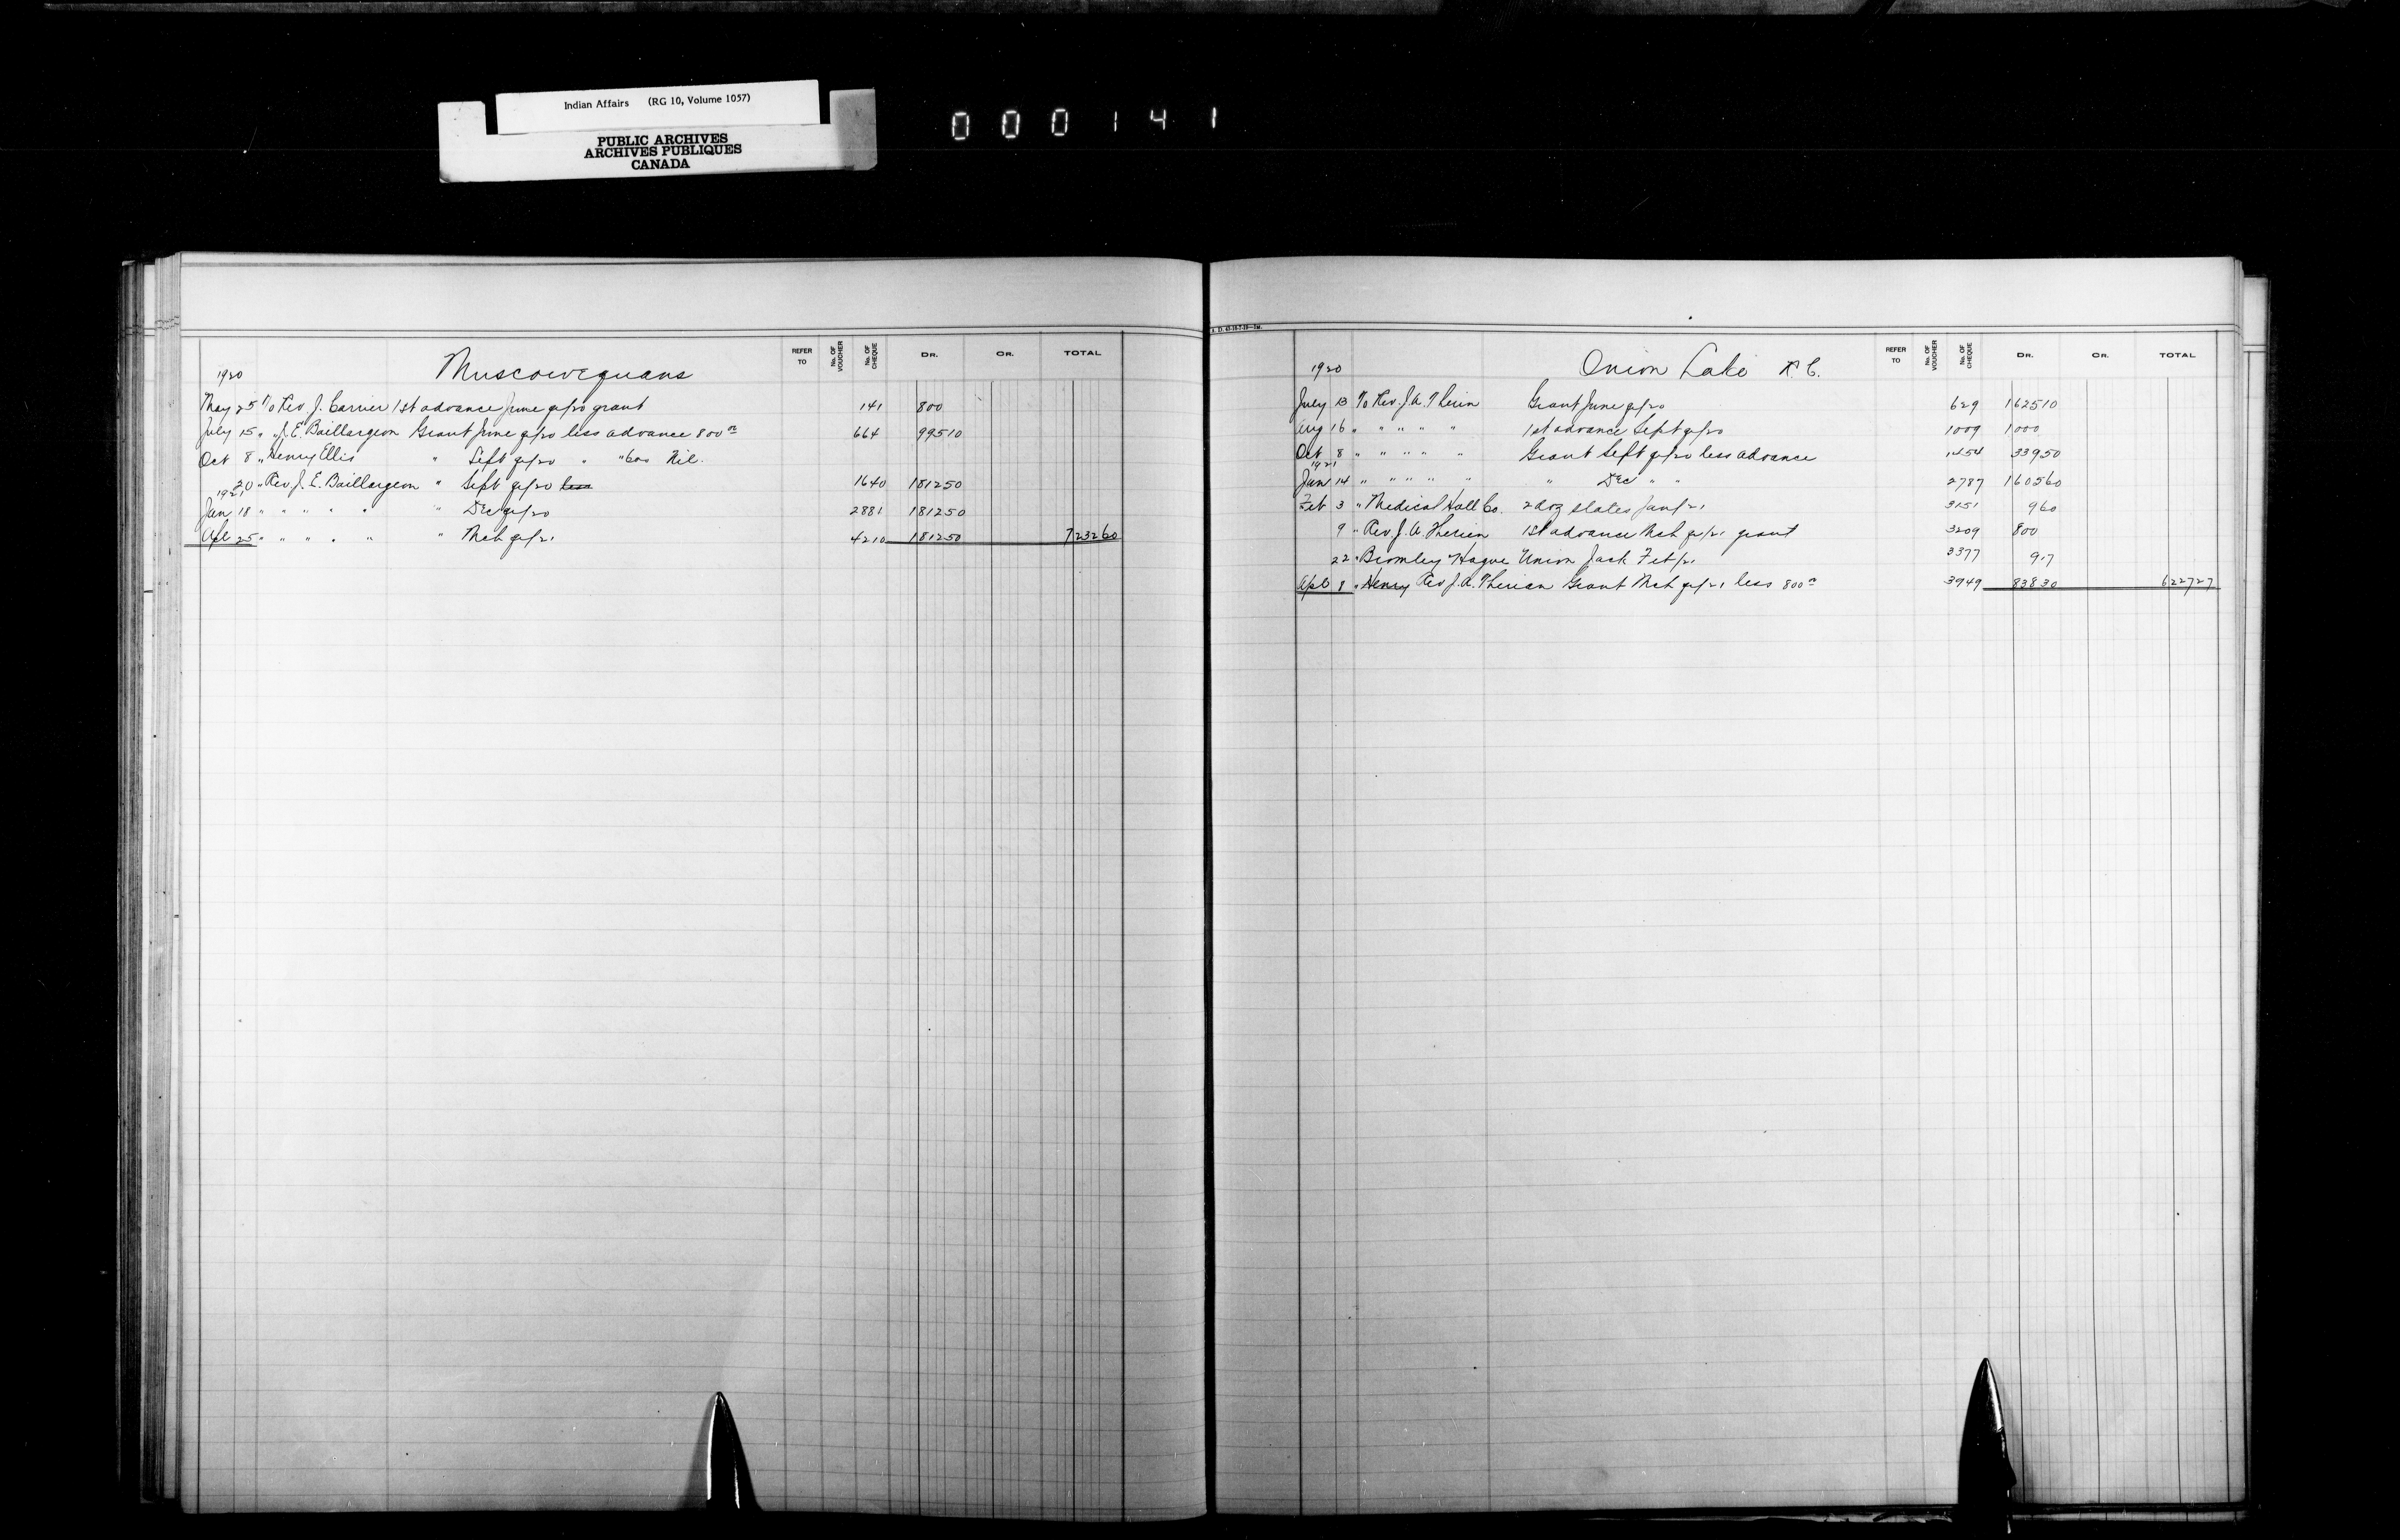 Indian Affairs (RG 10, Volume 1057)
PUBLIC ARCHIVES
ARCHIVES PUBLIQUES
CANADA
000141
REFER TO No. OF VOUCHER No. OF CHEQUE DR. CR. TOTAL
1920 Muscowequans
May 25 To Rev. J. Carrier 1st advance June qr/20 grant 141 800
July 15 " " J. E. Baillargeon Grant June qr/20 less advance 800 00 664 99510
Oct 8 " Henry Ellis " Sept qr/20 " " 600 Nil.
20 " Rev. J. E. Baillargeon " Sept qr/20 less 1640 181250
1921
Jan 18 " " " " " " Dec qr/20 2881 181250
Apl 25 " " " " " " Mch qr/21 4210 181250 723260
A. D. 43-10-7-19—1M.
REFER TO No. OF VOUCHER No. OF CHEQUE DR. CR. TOTAL
1920 Onion Lake R. C.
July 13 To Rev. J. A. Therien Grant June qr/20 629 162510
Aug 16 " " " " " 1st advance Sept qr/20 1009 1000
Oct 8 " " " " " Grant Sept qr/20 less advance 1454 33950
1921
Jan 14 " " " " " " Dec " " 2787 160560
Feb 3 " Medical Hall Co. 2 doz slates Jan/21 3151 960
9 " Rev J. A. Therien 1st advance Mch qr/21 grant 3209 800
22 " Bromley Hague Union Jack Feb/21 3377 917
Apl 8 " Henry Rev J. A. Therien Grant Mch qr/21 less 800 00 3949 83830 622727